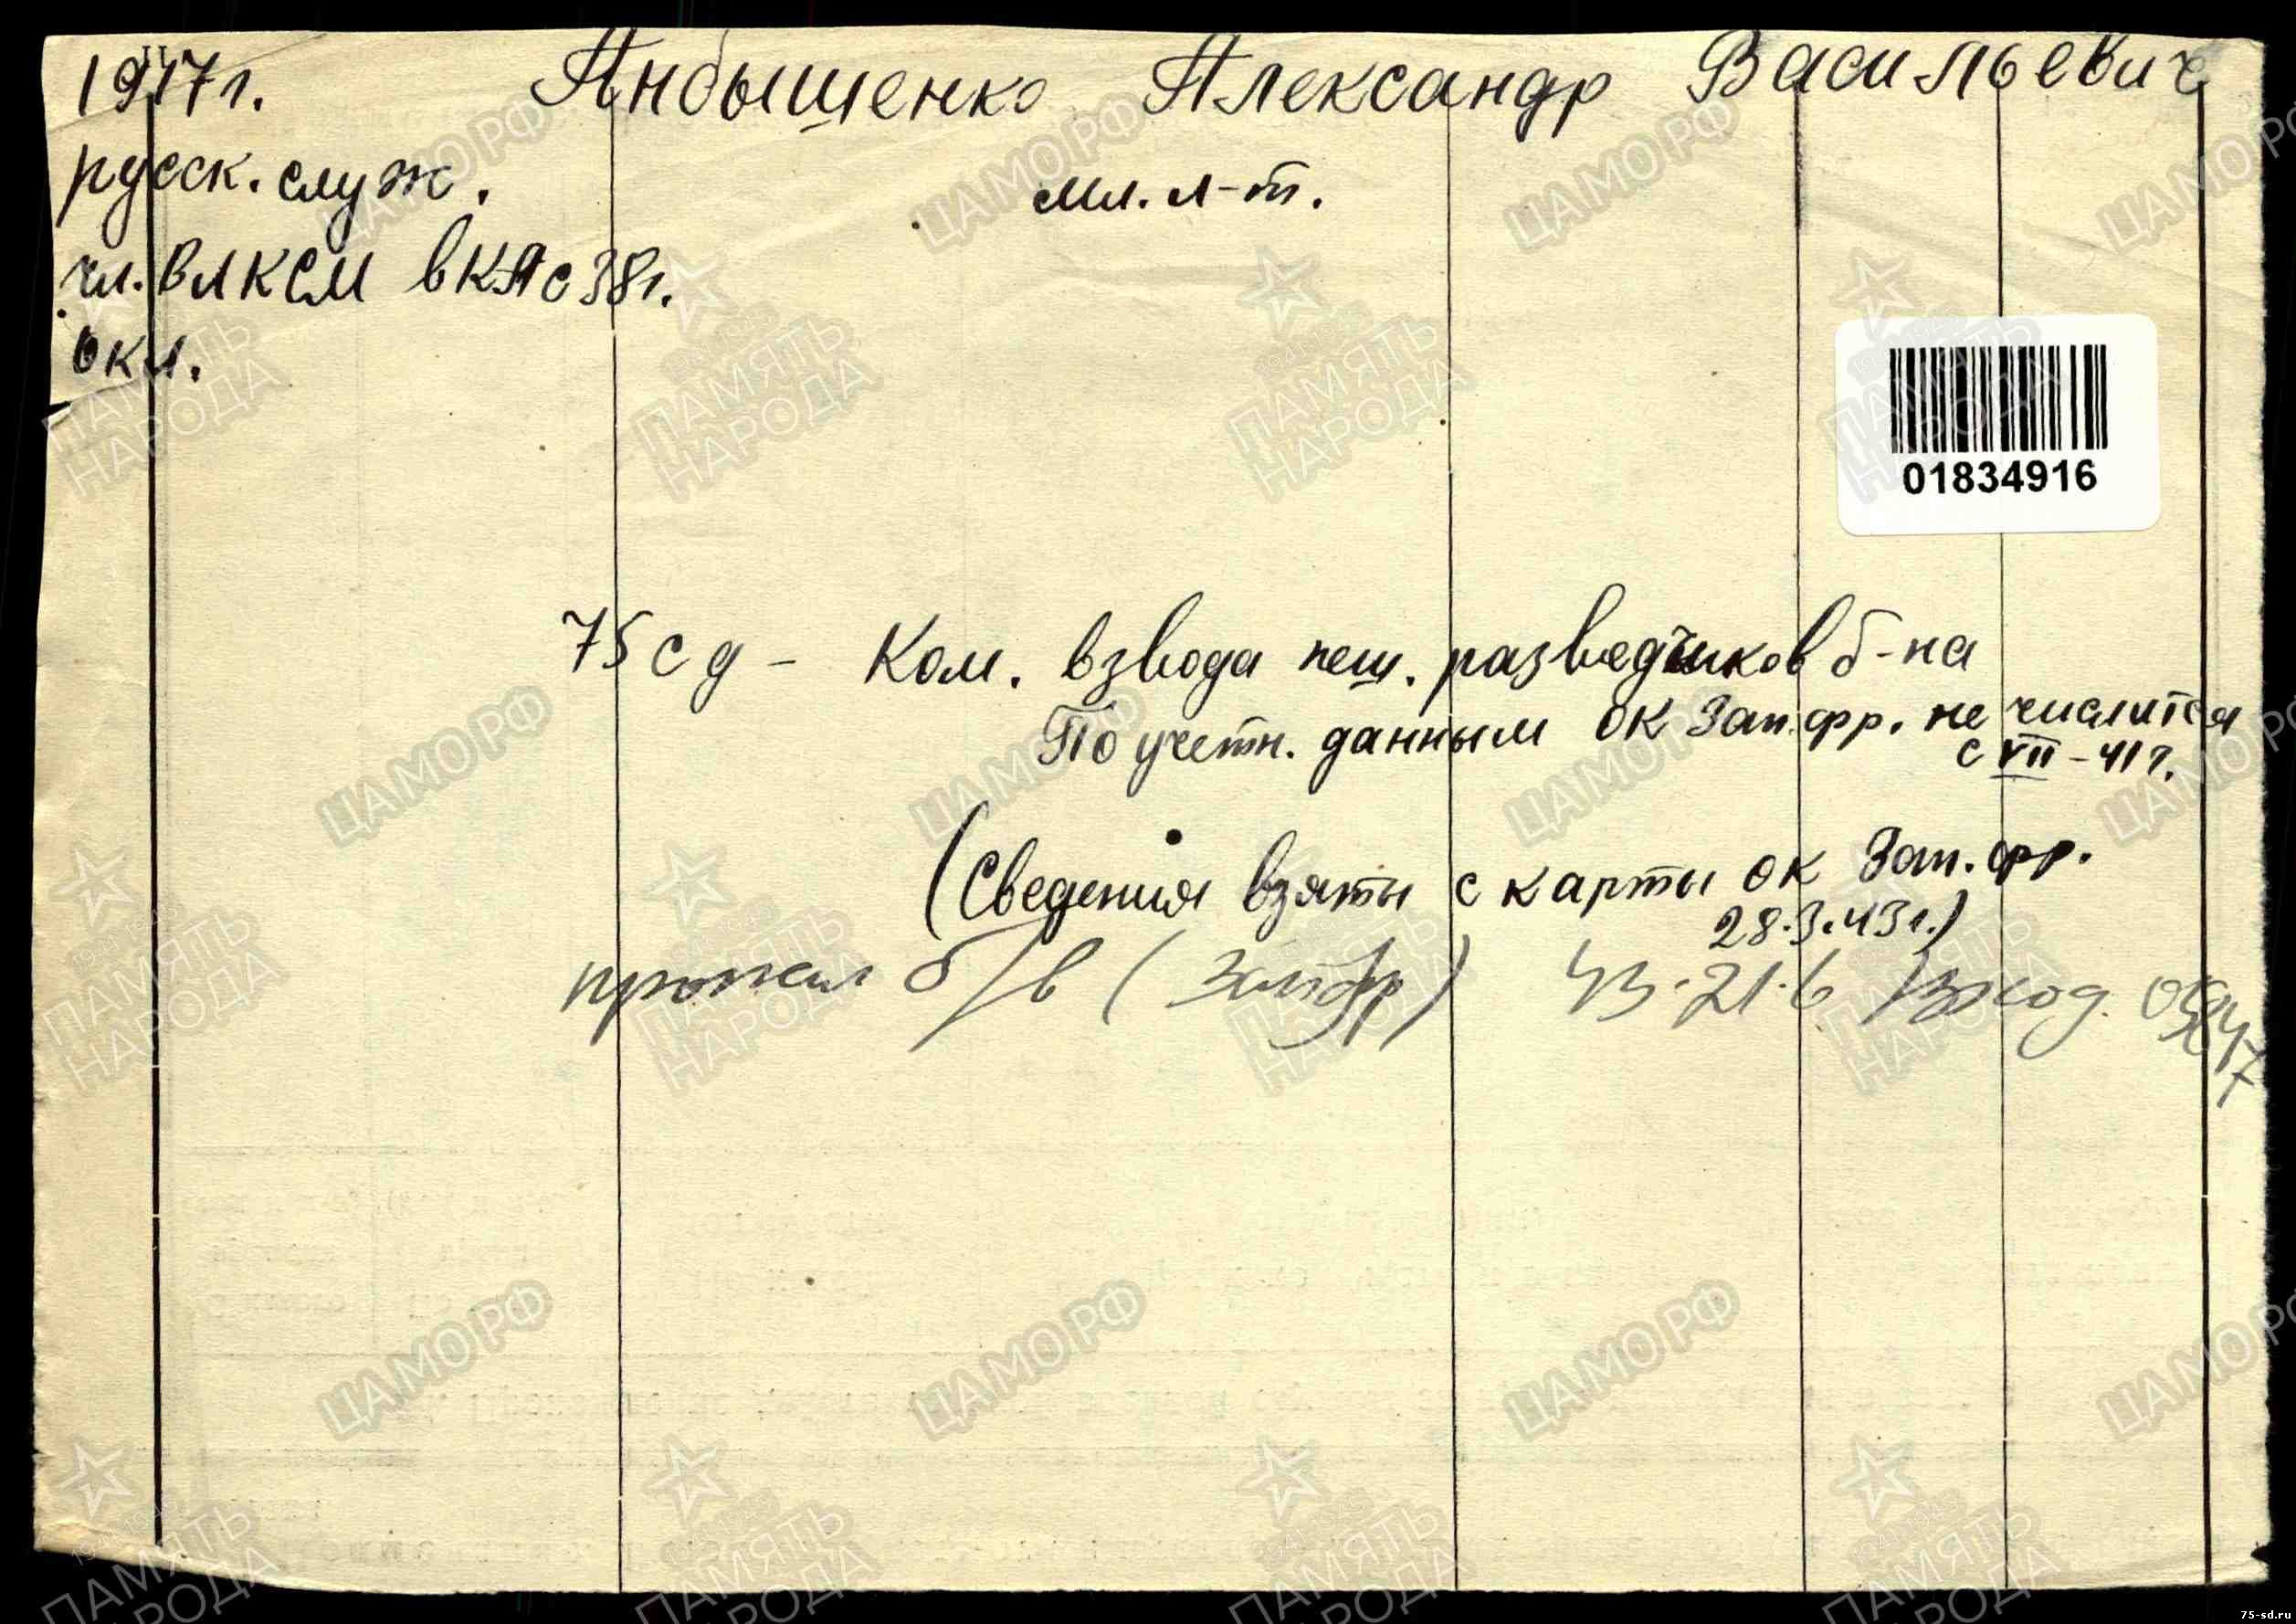 1917г. Анбышенко Александр Васильевич
русск. служ. мл. л-т.
чл. ВЛКСМ в КА с 38г.
окл.
01834916
75 с д - Ком. взвода пеш. разведчиков б-на
По учетн. данным ОК Зап. фр. не числится
с VII-41г.
(Сведения взяты с карты ОК Зап. фр.
28.3.43г.)
б/в (Запфр) 43.21.6
ЦАМО РФ
ПАМЯТЬ НАРОДА
75-sd.ru